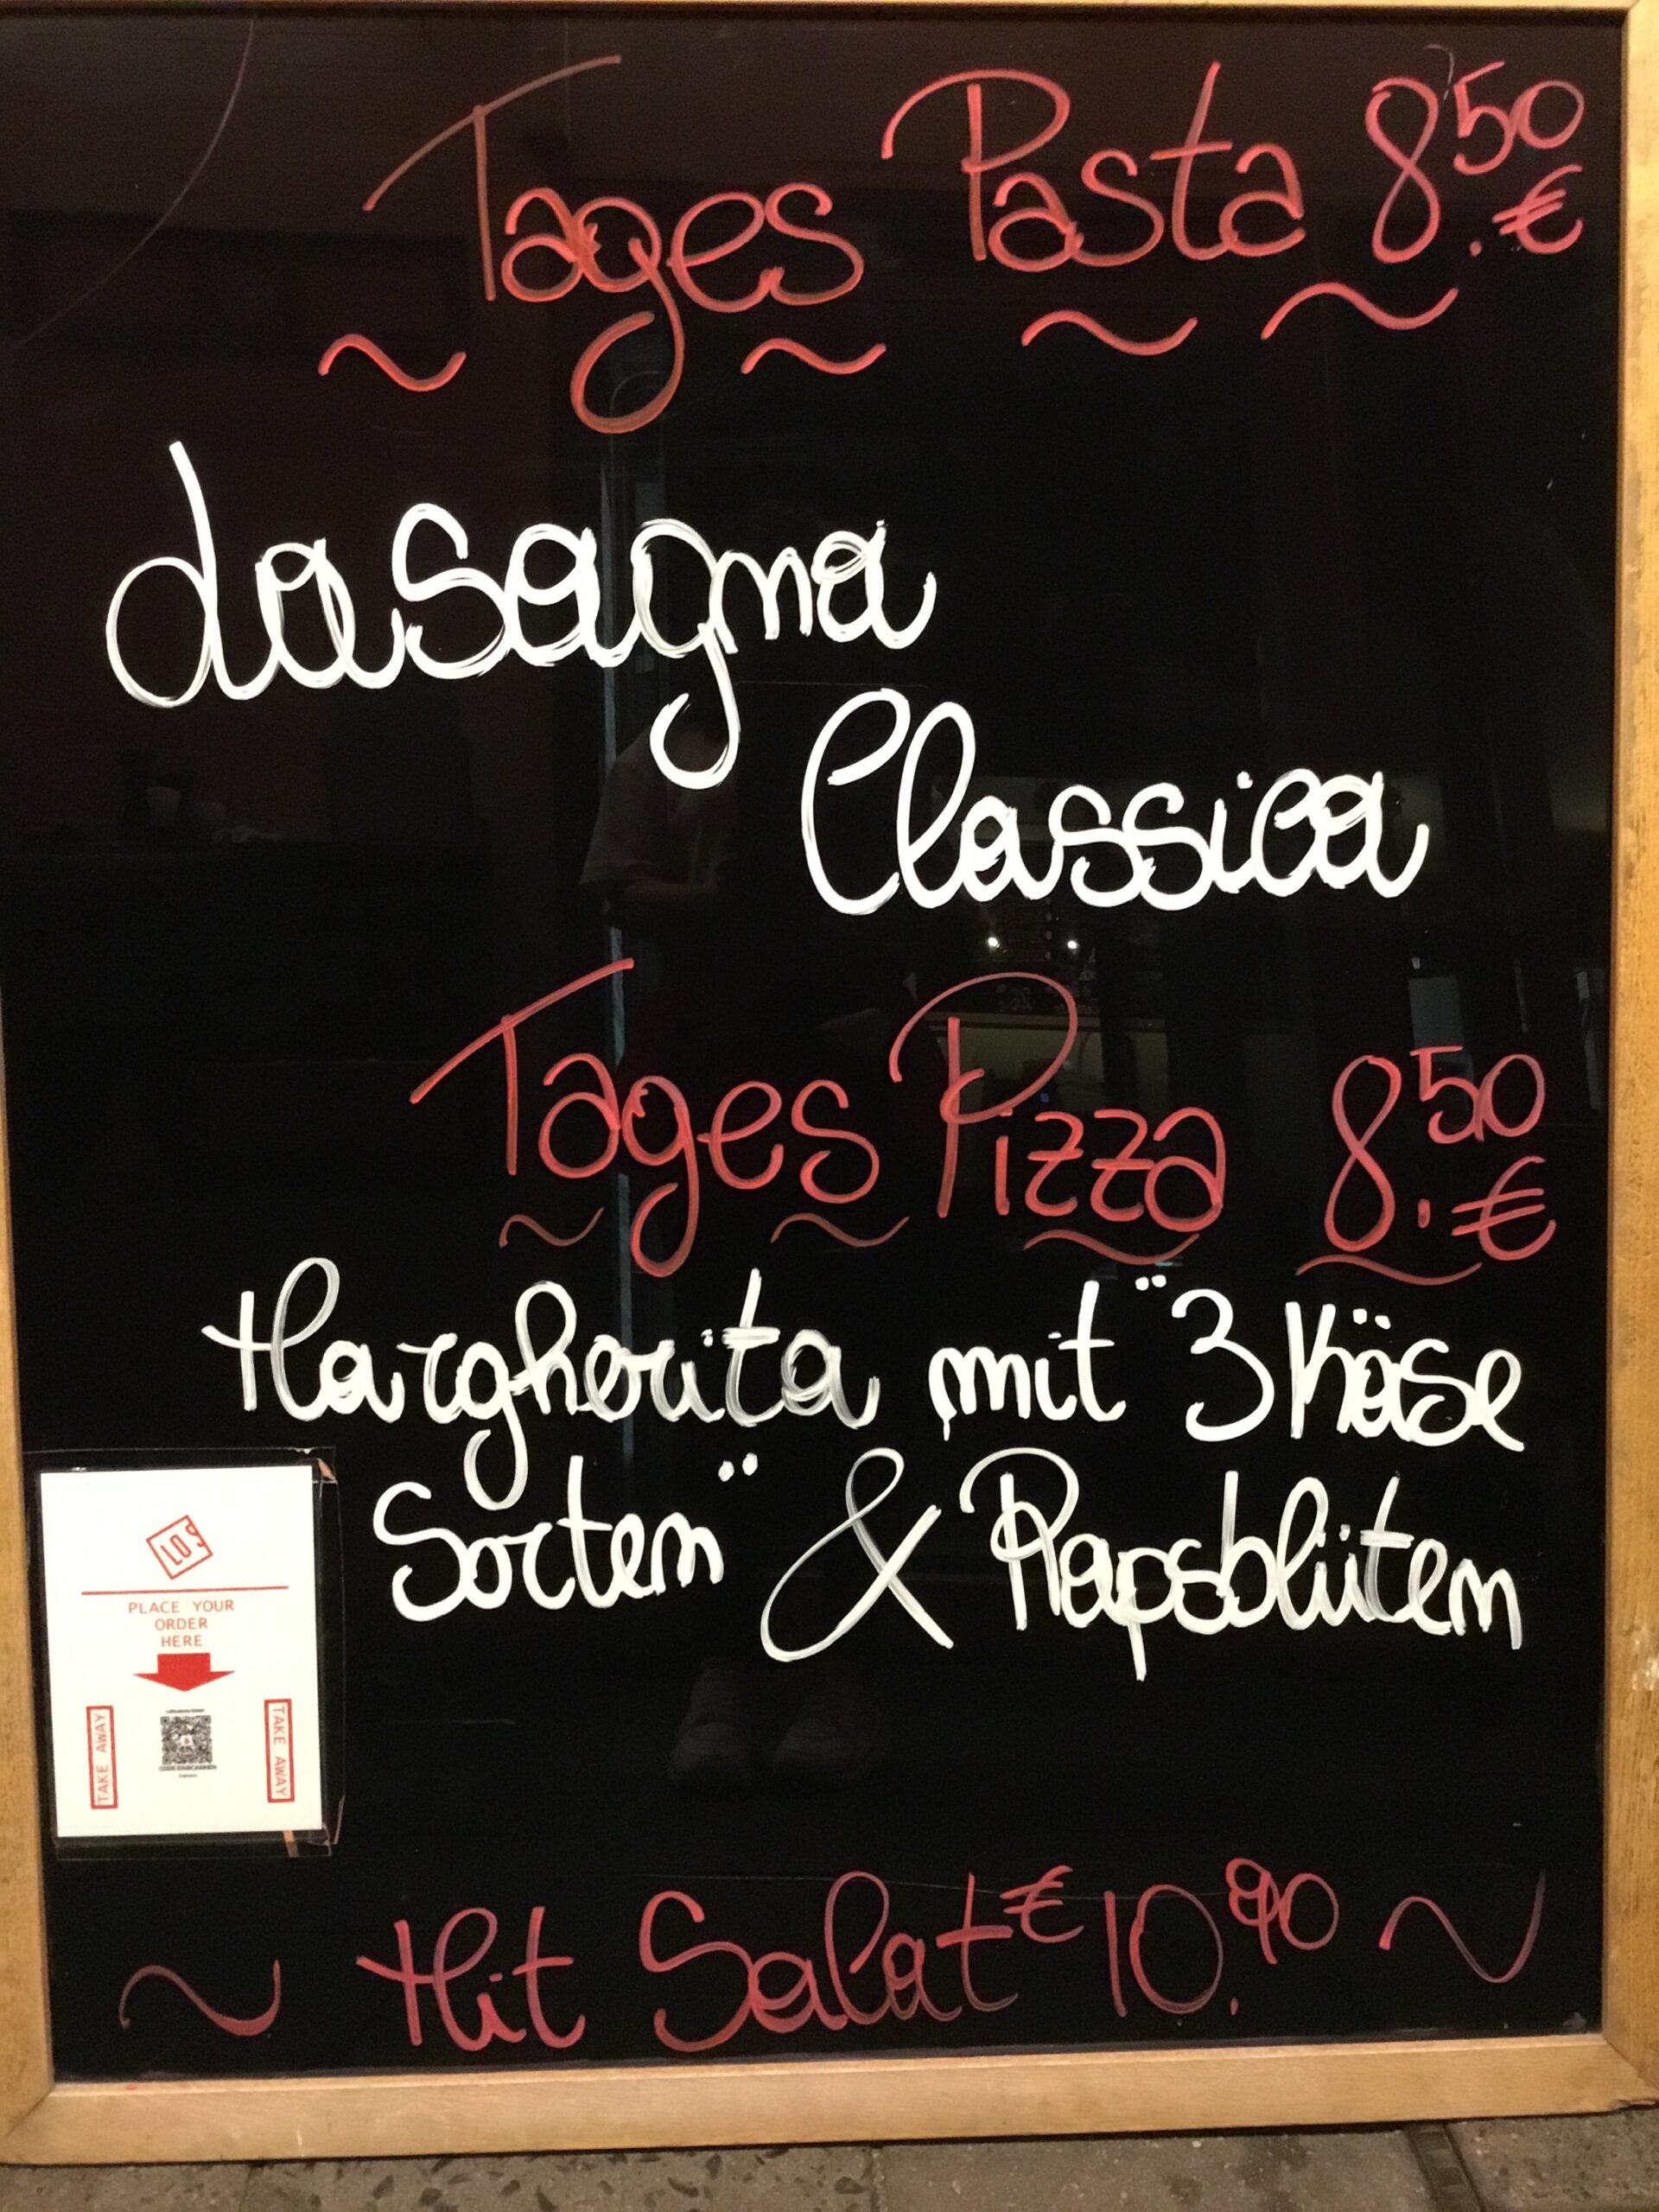 Tages Pasta 8.50 €
Lasagna
Classica
Tages Pizza 8.50 €
Margherita mit "3 Käse
Sorten" & Rapsblüten
LOS
PLACE YOUR
ORDER
HERE
TAKE AWAY
TAKE AWAY
CODE EINSCANNEN
~ Mit Salat € 10.90 ~